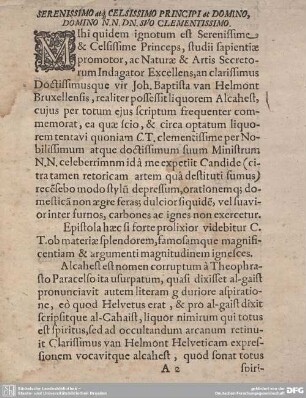 SERENISSIMO atq; CELSISSIMO PRINCIPI et DOMINO,
DOMINO N.N. DN. SUO CLEMENTISSIMO.
Mihi quidem ignotum est Serenissime
& Celsissime Princeps, studii sapientiæ
promotor, ac Naturæ & Artis Secreto-
rum Indagator Excellens, an clarissimus
Doctissimusque vir Joh. Baptista van Helmont
Bruxellensis, realiter possessit liquorem Alcahest,
cujus per totum ejus scriptum frequenter com-
memorat, ea quæ scio, & circa optatum liquo-
rem tentavi quoniam C.T. clementissime per No-
bilissimum atque doctissimum suum Ministrum
N.N. celeberrimnm id à me expetiit Candide (ci-
tra tamen retoricam artem quâ destituti sumus)
recēsebo modo stylû depressum, orationemq; do-
mesticâ non ægre feras; dulcior siquidē, vel suavi-
or inter furnos, carbones ac ignes non exercetur.
Epistola hæc si forte prolixior videbitur C.
T. ob materiæ splendorem, famosamque magnifi-
centiam & argumenti magnitudinem ignosces.
Alcahest est nomen corruptum à Theophra-
sto Paracelso ita usurpatum, quasi dixisset al-gaist
pronunciavit autem literam g duriore aspiratio-
ne, eò quod Helvetus erat, & pro al-gaist dixit
scripsitque al-Cahaist, liquor nimirum qui totus
est spiritus, sed ad occultandum arcanum retinu-
it Clarissimus van Helmont Helveticam expres-
sionem vocavitque alcahest, quod sonat totus
A 2 spiri-